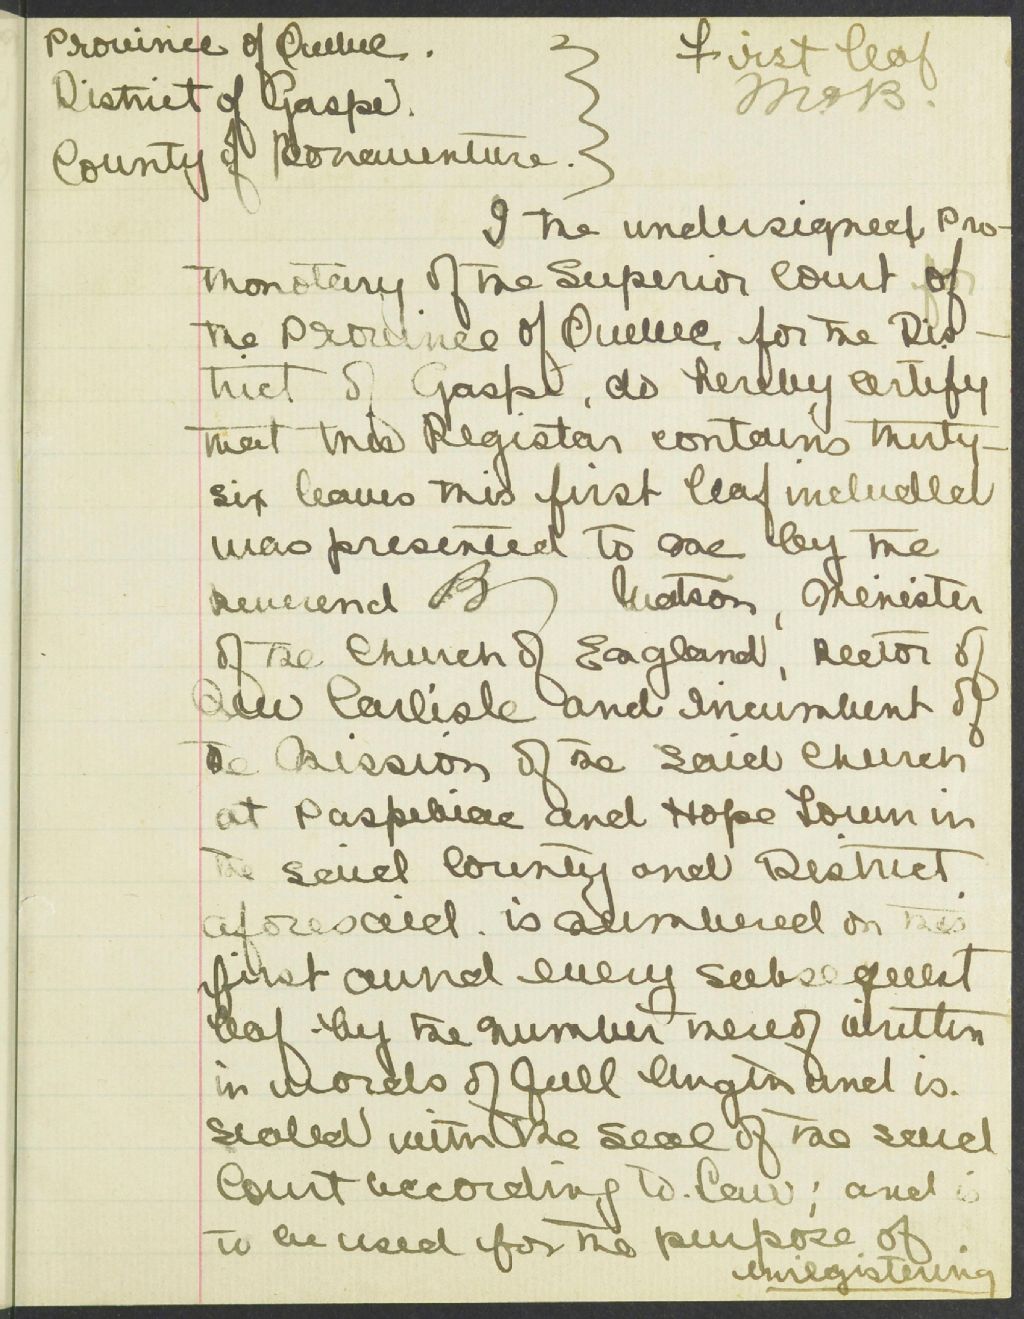 Province of Quebec.
First leaf
District of Gaspé.
County of Bonaventure.
I the undersigned Pro-
thonotary of the Superior Court of
the Province of Quebec, for the Dis-
trict of Gaspé, do hereby certify
that this Register contains thirty-
six leaves this first leaf included
was presented to me by the
Reverend B Watson, Minister
of the Church of England, Rector of
New Carlisle and Incumbent of
the Mission of the said Church
at Paspebiac and Hope Town in
the said County and District
aforesaid. is numbered on this
first and every subsequent
leaf by the number thereof written
in words of full length and is.
sealed with the seal of the said
Court according to Law; and is
to be used for the purpose of
enregistering